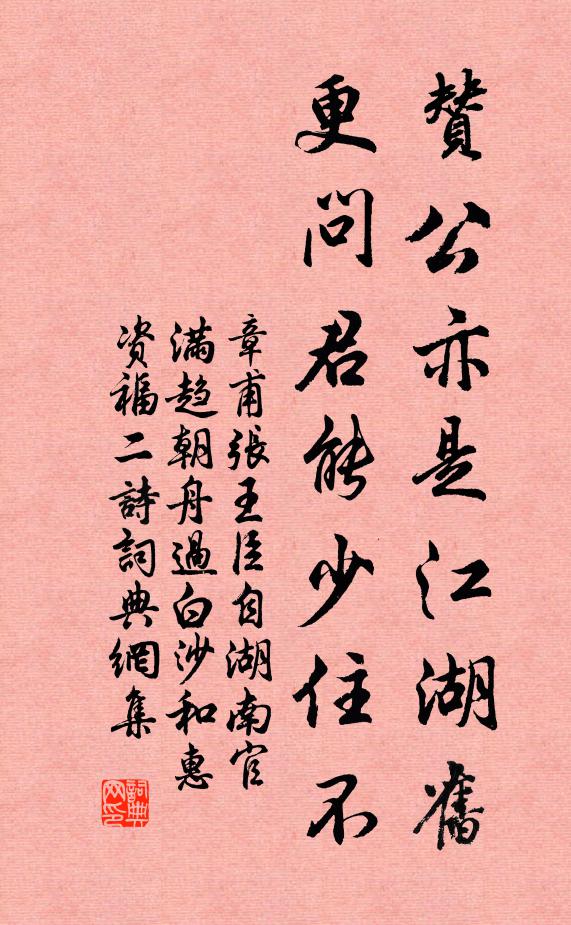 贊公亦是江湖舊
更問君能少住不
章甫張王臣自湖南官
滿趋朝舟過白沙和惠
资福二詩詞典網集
詞典
网印